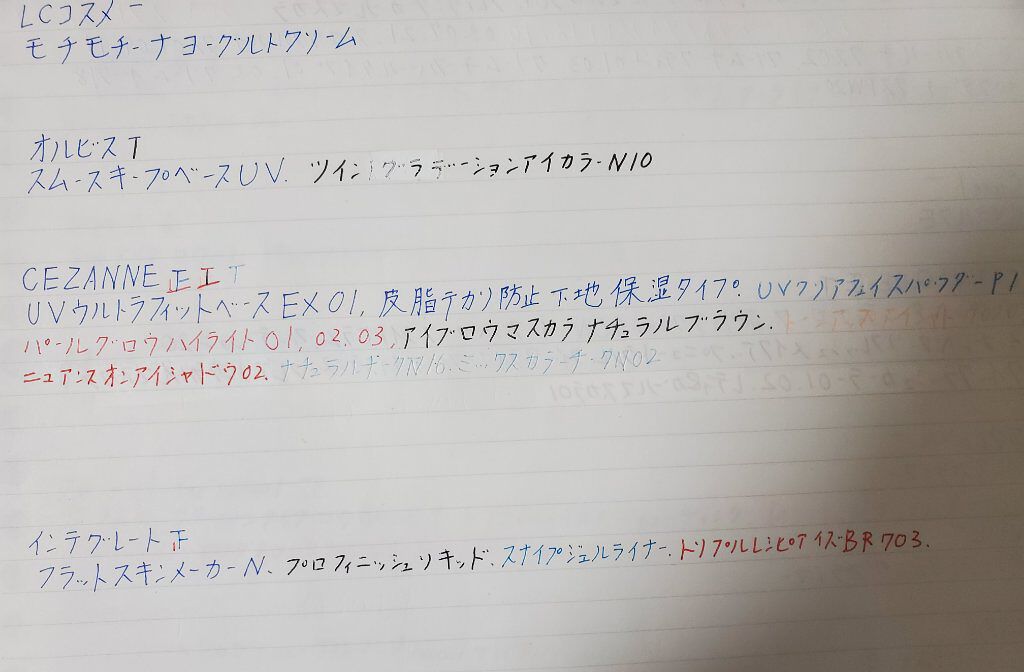 LCコスメ 一
モチモチーナヨーグルトクリーム
オルビス T
スムースキープベースUV. ツイングラデーションアイカラーN10
CEZANNE 正 工 T
UVウルトラフィットベースEX01, 皮脂テカリ防止下地 保湿タイプ. UVクリアフェイスパウダーP1
パールグロウハイライト01, 02, 03, アイブロウマスカラ ナチュラルブラウン.
ニュアンスオンアイシャドウ02. ナチュラルチークN16. ミックスカラーチークN02
インテグレート 正
フラットスキンメーカーN、プロフィニッシュリキッド、スナイプジェルライナー. トリプルレシピアイズBR703.